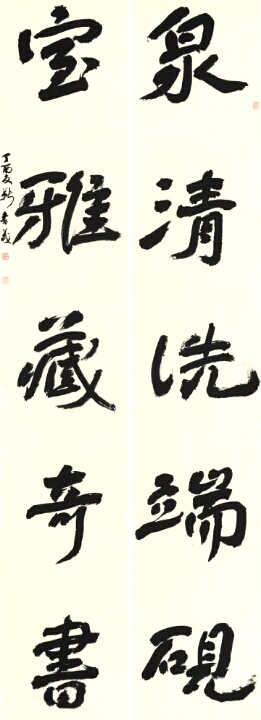 泉清洗端硯
室雅藏奇書
丁酉夂